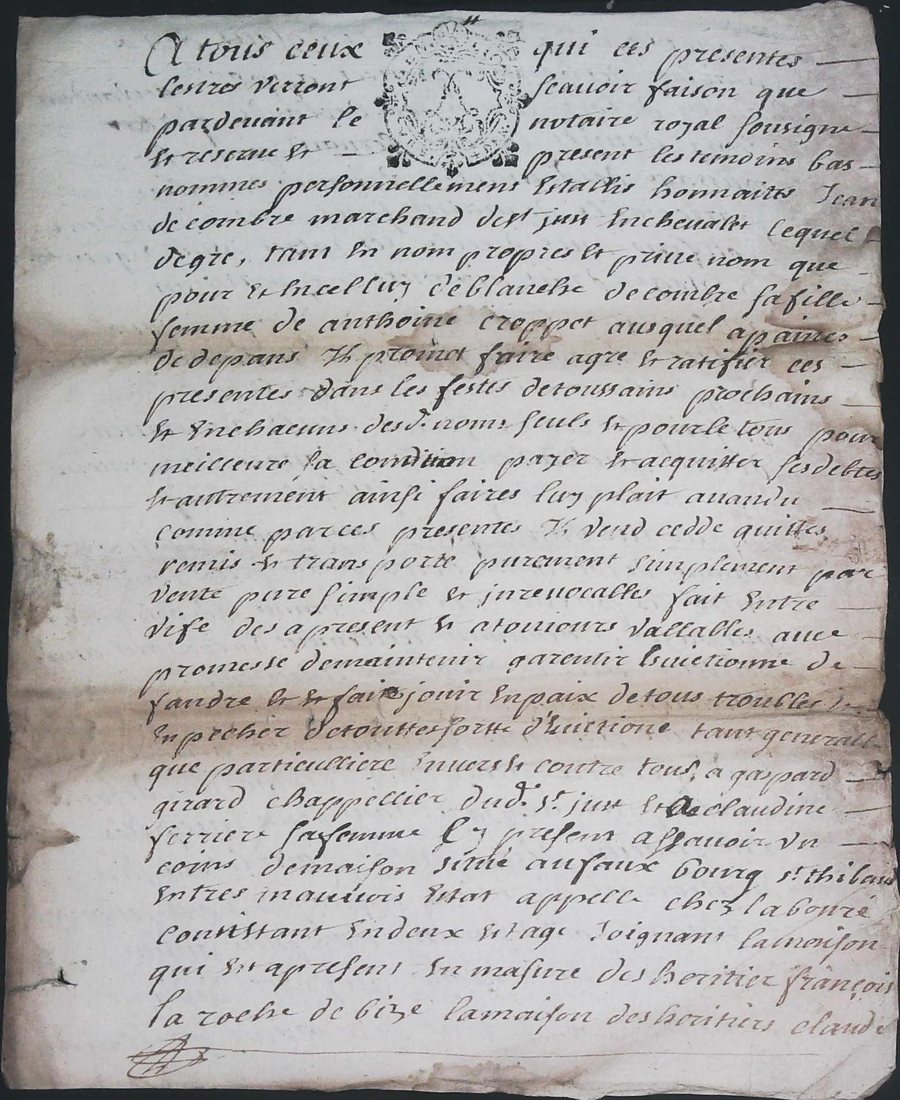 A tous ceux qui ces presentes
lestres verront scavoir faison que
pardevant le notaire royal sousigne
et reserue et present les temoins bas
nommes personnellement estallis honnaistes Jean
decombre marchand de st just enchevalet lequel
degre, tant en nom propres et priue nom que
pour et en celluy de blanche decombre sa fille
femme de anthoine croppet ausquel apaines
de depans Il promet faire agre et ratifier ces
presentes dans les festes detoussains prochains
et enchacuns desd. noms seuls et pour le tous pour
meilleure sa condition payer et acquitter ses debtes
et autrement ainsi faires luy plait auandu
comme par ces presentes Il vend cedde quittes
remis et transporte purement simplement par
vente pure simple et jrreuocalles fait entre
vifs des apresent et a toujours vallables auec
promesse demaintenir garentir euictionne de
fandre et et faire jouir en paix de tous troubles
enpecher detouttes sorte d'euictione tant general
que particulliere enuers et contre tous, a gaspard
girard chappellier dud. st. just et a claudine
ferriere sa femme Cy present assavoir vn
coins demaison situé au faux bourg st. thibaud
entres mauuois estat appelle chez la bouré
contistant endeux estage Joignant la moison
qui est apresent en masure des heritier françois
la roche de bize la maison des heritiers claude